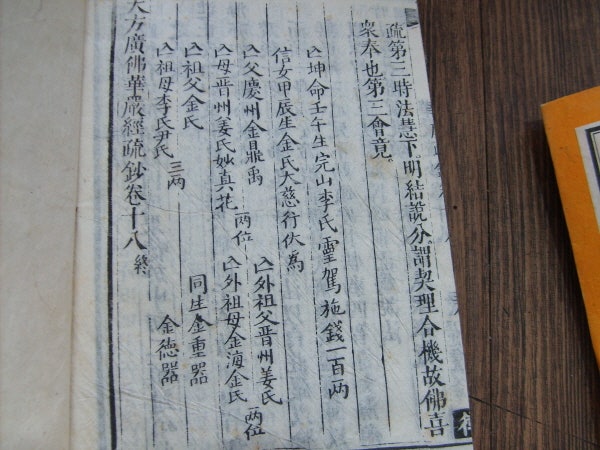 疏第三時法慧下明結說分謂契理合機故佛喜
衆奉也第三會竟
亾坤命壬午生完山李氏靈駕施錢一百兩
信女甲辰生金氏大慈行伏爲
亾父慶州金日鼎禹
亾母晉州姜氏妙真花
兩位
亾外祖父晉州姜氏
亾外祖母金海金氏
兩位
亾祖父金氏
亾祖母李氏尹氏
三兩
同生金重器
金德器
大方廣佛華嚴經疏鈔卷十八 終